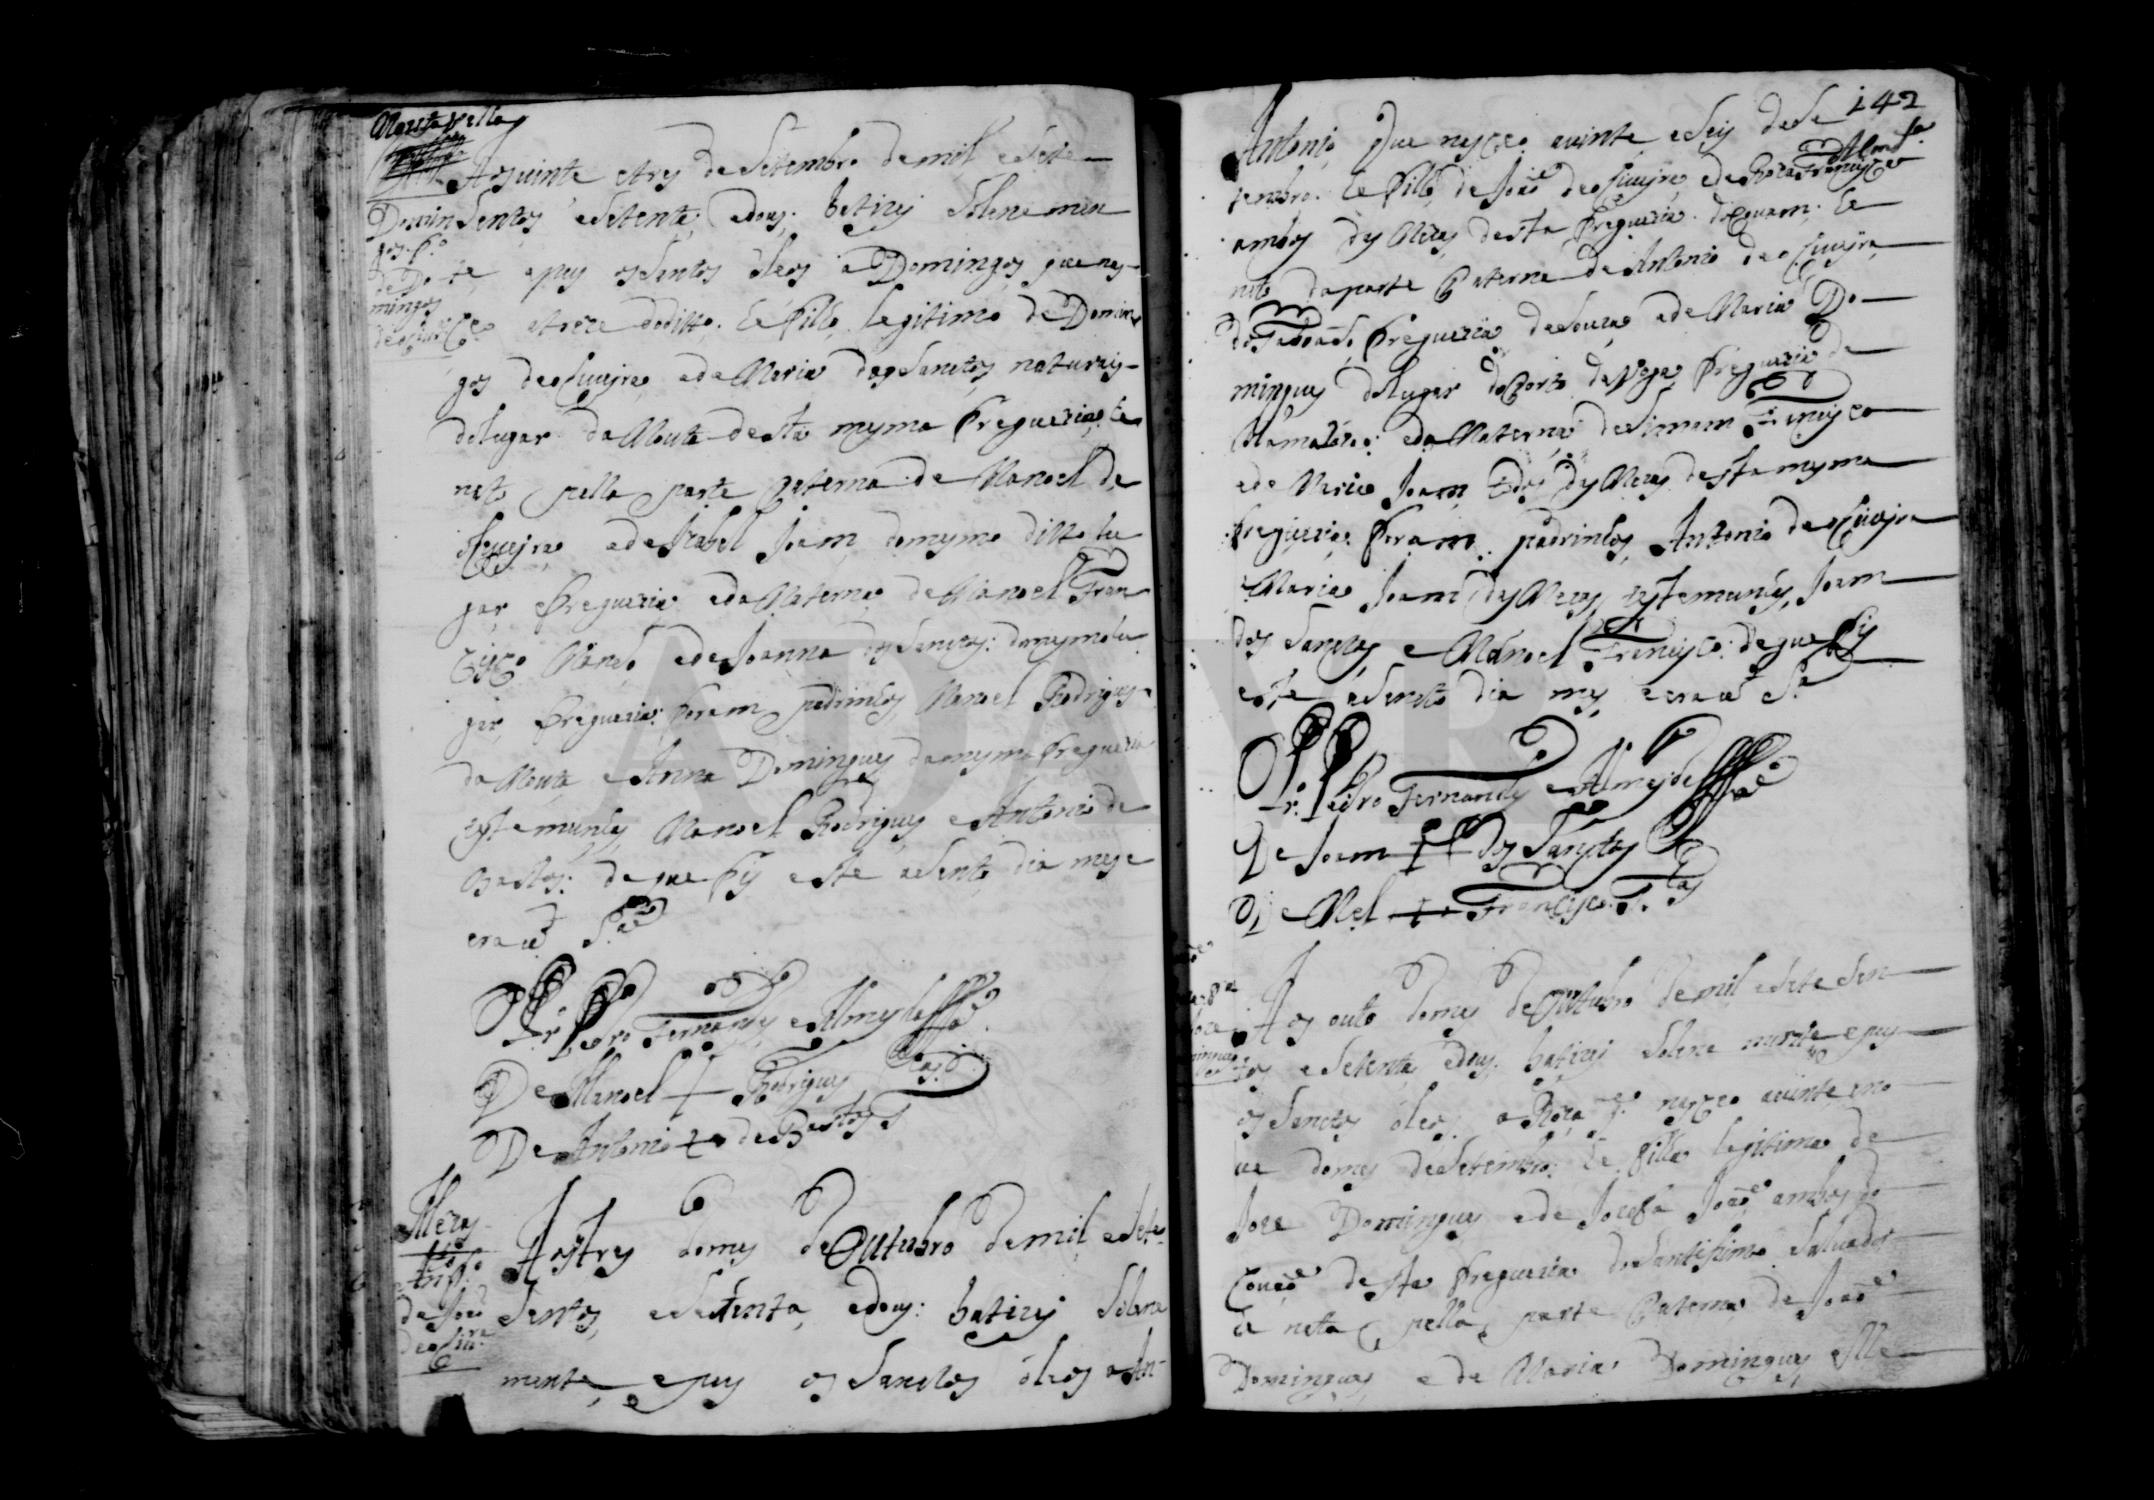 Mouta vella
Aos vinte e tres de Setembro de mil e sete
Domin
sentos e setenta e dous: batizei solene men
gos fo
te e pus os santos óleos a Domingos que nas
de Do
mingos
ceo a treze do ditto: he fillo legitimo de Domin
gos de oliueyra e de Maria dos Sanctos naturais
do lugar da Mouta desta mesma freguezia: he
neto pella parte paterna de Manoel de
oliueyra e de Izabel Joam do mesmo ditto lu
gar e freguezia e da Materna de Manoel Fran
cisco e de Joanna dos Sanctos: do mesmo lu
gar e freguezia: foram padrinhos Manoel Rodrigues
da Mouta e Anna Domingues da mesma freguezia
testemunhas Manoel Rodrigues e Antonio de
Bastos: de que fis este asento dia mes e
era ut S.a
Pedro Fernandes e Almeyda
De Manoel + Rodrigues
De Antonio + de Bastos
Mezas
Anto fo
de Joaõ
de oliura
Aos tres do mes de Outubro de mil e sete
sentos e setenta e dous: batizei solene
mente e pus os Sanctos óleos a An
142
Antonio que nasceo a vinte e seis de Se
tembro: he fillo de Joaõ de oliueyra e de Roza Francisca
ambos das Mezas desta freguezia: he
neto da parte Paterna de Antonio de oliueyra
freguezia de Souza e de Maria Do
mingues do lugar do Porto da Vega freguezia de
e da Materna de Simam Francisco
e de Maria Joam todos das Mezas desta mesma
freguezia: foram padrinhos Antonio de oliueyra
e Maria Joam das Mezas testemunhas Joam
dos Sanctos e Manoel Francisco: de que fis
este asento dia mes e era ut S.a
Pedro Fernandes e Almeyda
De Joam + dos Sanctos
De Mel + Francisco
Aos outo do mes de Outubro de mil e sete sen
tos e setenta e dous: batizei solene mente e pus
os Sanctos óleos a Roza q. nasceo a vinte e no
ve do mes de Setembro: he filla legitima de
Joze Domingues e de Jozefa Joaõ ambos do
Couço desta freguezia do Santissimo Salvador
he neta pella parte Paterna de Joaõ
Domingues e de Maria Domingues elle
ADAVR